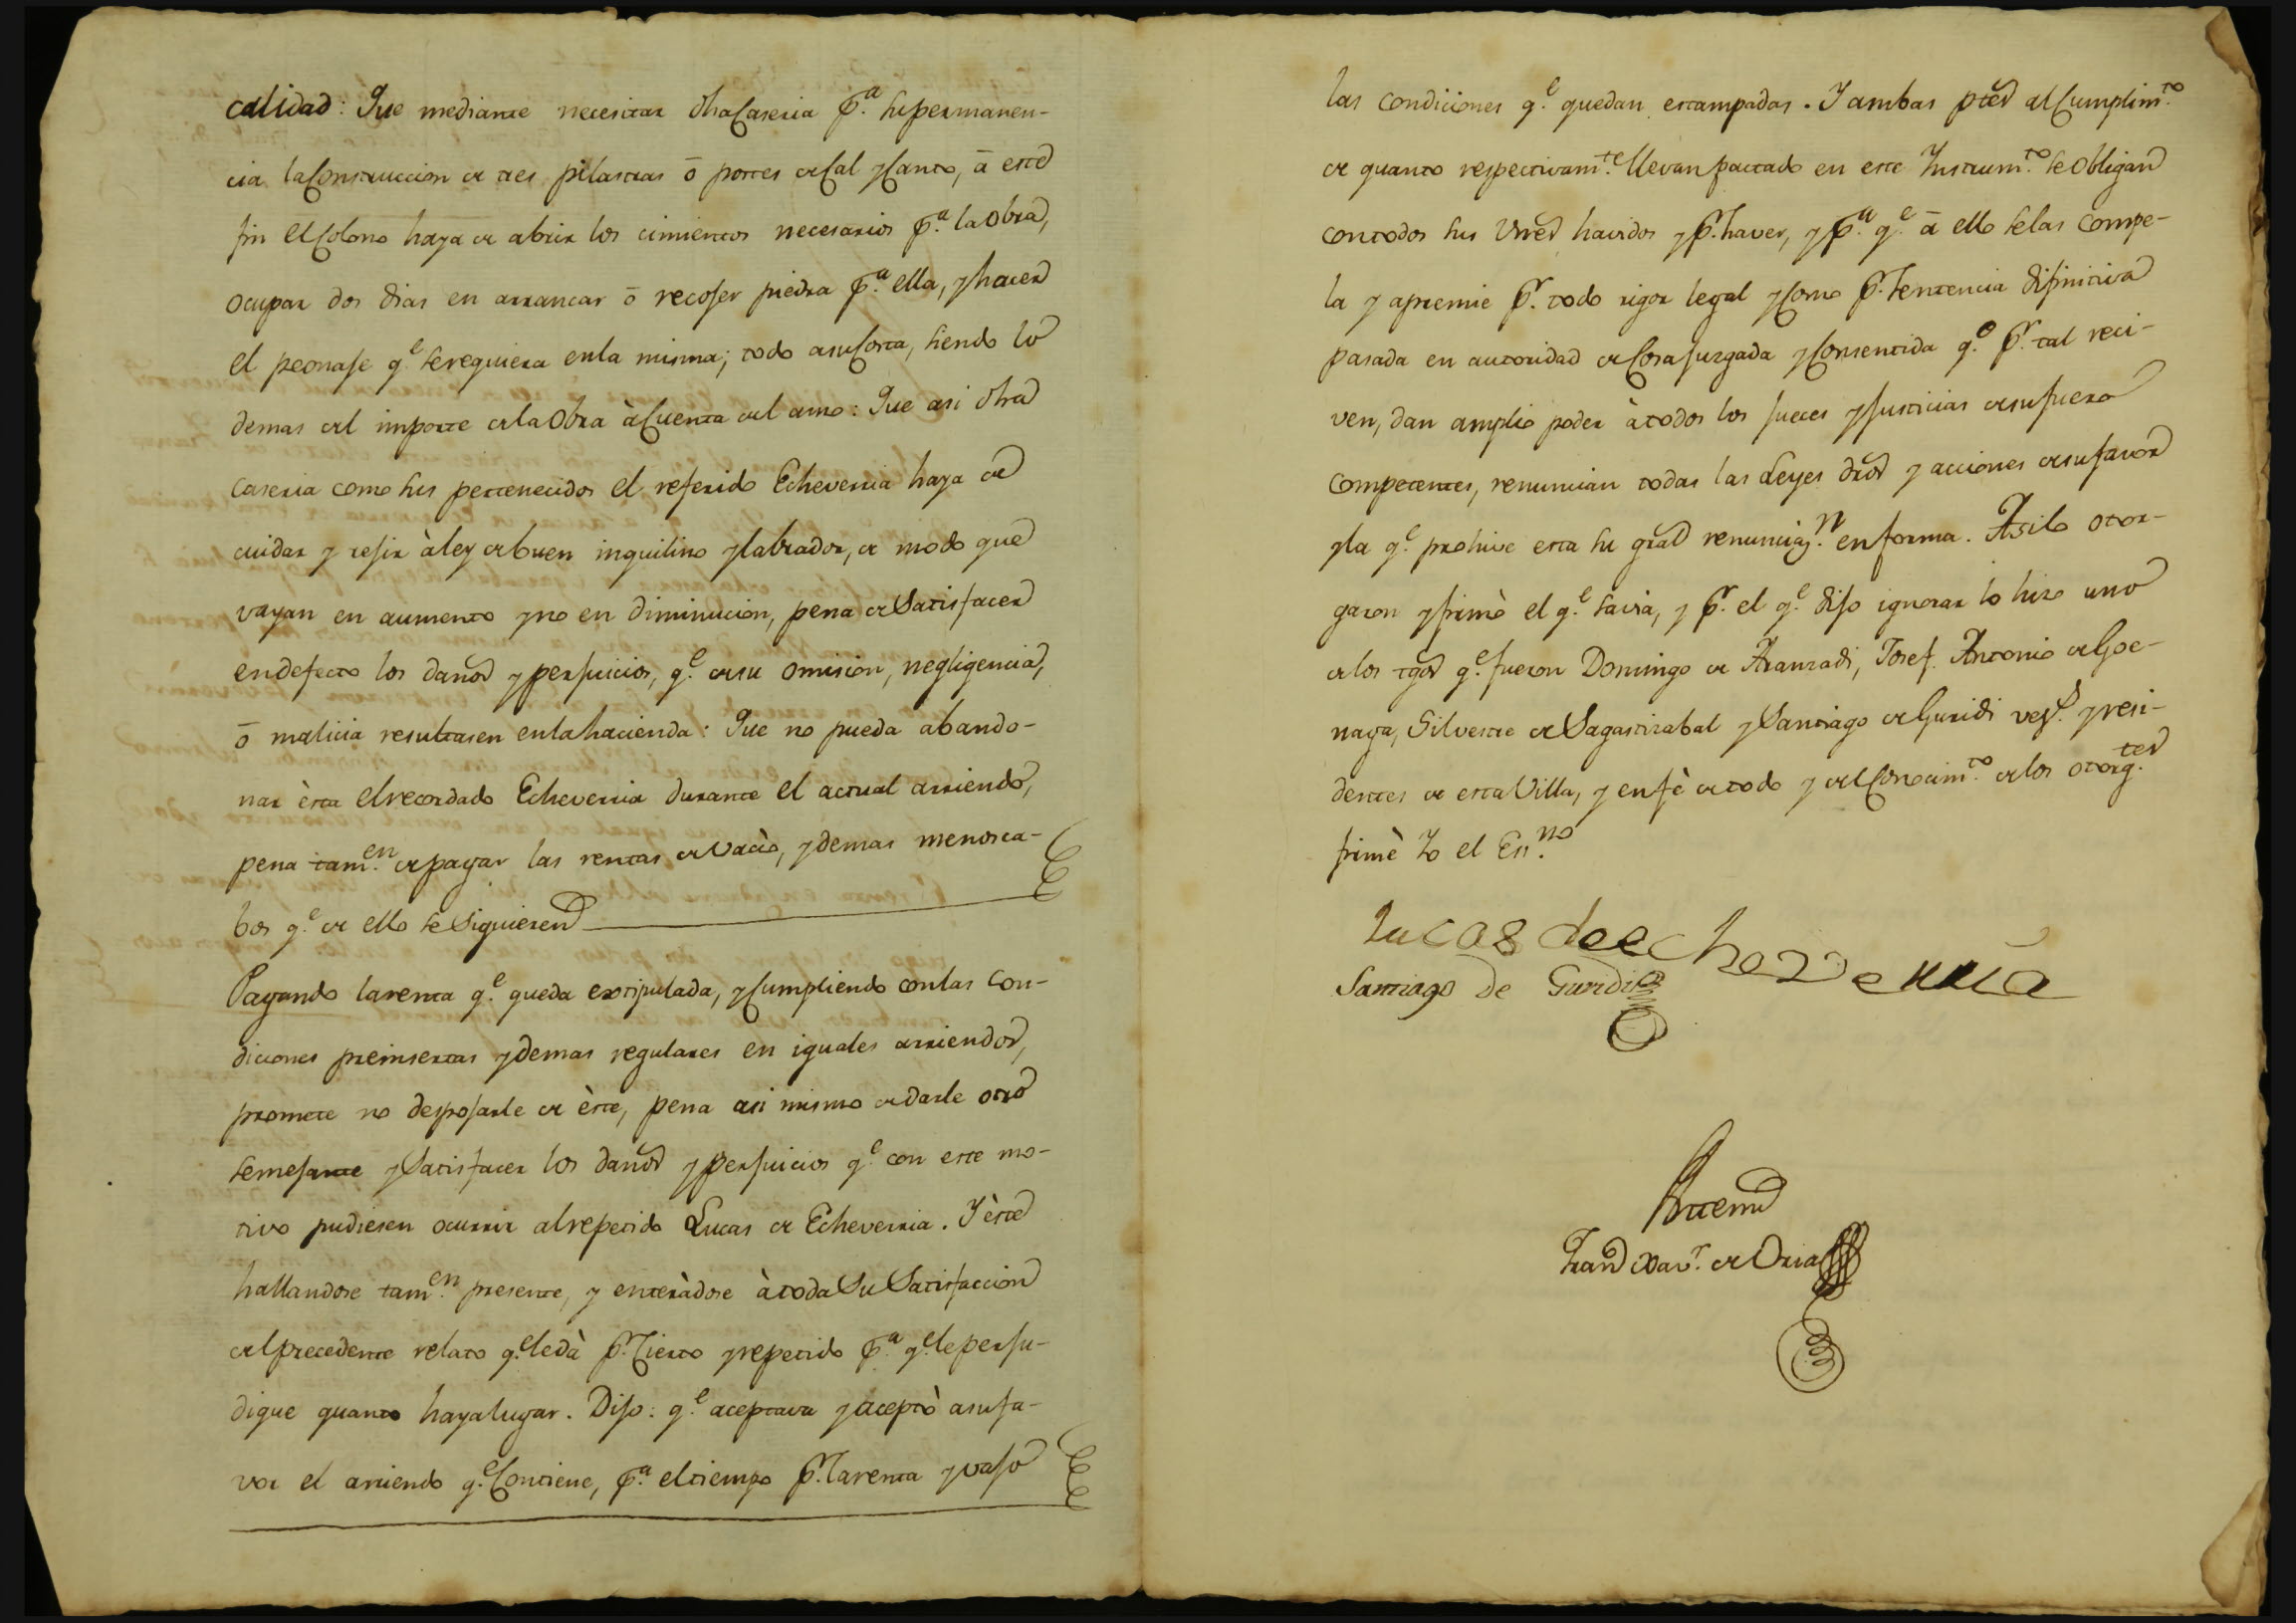 calidad: Que mediante necesitar dha Caseria p.ª su permanen-
cia la Construccion de tres pilastras ō postes de Cal y Canto, ā este
fin el Colono haya de abrir los cimientos necesarios p.ª la Obra,
ocupar dos dias en arrancar ō recojer piedra p.ª ella, y hacer
el peonaje q.e se requiera en la misma; todo a su Costa, siendo lo
demas del importe de la Obra à Cuenta del amo: Que asi dha
Caseria como sus pertenecidos el referido Echeverria haya de
cuidar y rejir à ley de buen inquilino y labrador, de modo que
vayan en aumento y no en diminucion, pena de Satisfacer
en defecto los daños y perjuicios, q.e de su omision, negligencia,
ō malicia resultasen en la hacienda: Que no pueda abando-
nar èsta el recordado Echeverria durante el actual arriendo,
pena tam.en de pagar las rentas de vacìo, y demas menosca-
bos q.e de ello se Siguieren
Pagando la renta q.e queda extipulada, y Cumpliendo con las Con-
diciones preinsertas y demas regulares en iguales arriendos,
promete no despojarle de èste, pena asi mismo de darle otro
semejante y Satisfacer los daños y perjuicios q.e con este mo-
tivo pudiesen ocurrir al repetido Lucas de Echeverria. Y èste
hallandose tam.en presente, y enteràdose à toda Su Satisfaccion
del precedente relato q.e le dà p.r Cierto y repetido p.ª q.e le perju-
dique quanto haya lugar. Dijo: q.e aceptava y aceptò a su fa-
vor el arriendo q.e Contiene, p.ª el tiempo p.r la renta y vajo
las Condiciones q.e quedan estampadas. Y ambas ptes al Cumplim.to
de quanto respectivam.te llevan pactado en este Instrum.to se Obligan
con todos sus Vnes havidos y p.r haver, y p.ª q.e ā ello se las Compe-
la y apremie p.r todo rigor legal y Como p.r Sentencia difinitiva
pasada en autoridad de Cosa juzgada y Consentida q.e p.r tal reci-
ven, dan amplio poder à todos los Jueces y Justicias de su fuero
Competentes, renuncian todas las Leyes dros y acciones de su favor
y la q.e prohive esta su gral renunciaz.n en forma. Asi lo otor-
garon y firmò el q.e savia, y p.r el q.e dijo ignorar lo hizo uno
de los tgos q.e fueron Domingo de Aranzadi, Josef Antonio de Goe-
naga, Silvestre de Sagastizabal y Santiago de Guridi vez.s y resi-
dentes de esta Villa, y en fè de todo y del Conocim.to de los otorg.tes
firmè Yo el Es.no
Lucas de echeverria
Santiago de Guridi
Antemi
Fran.co Xav.r de Oria